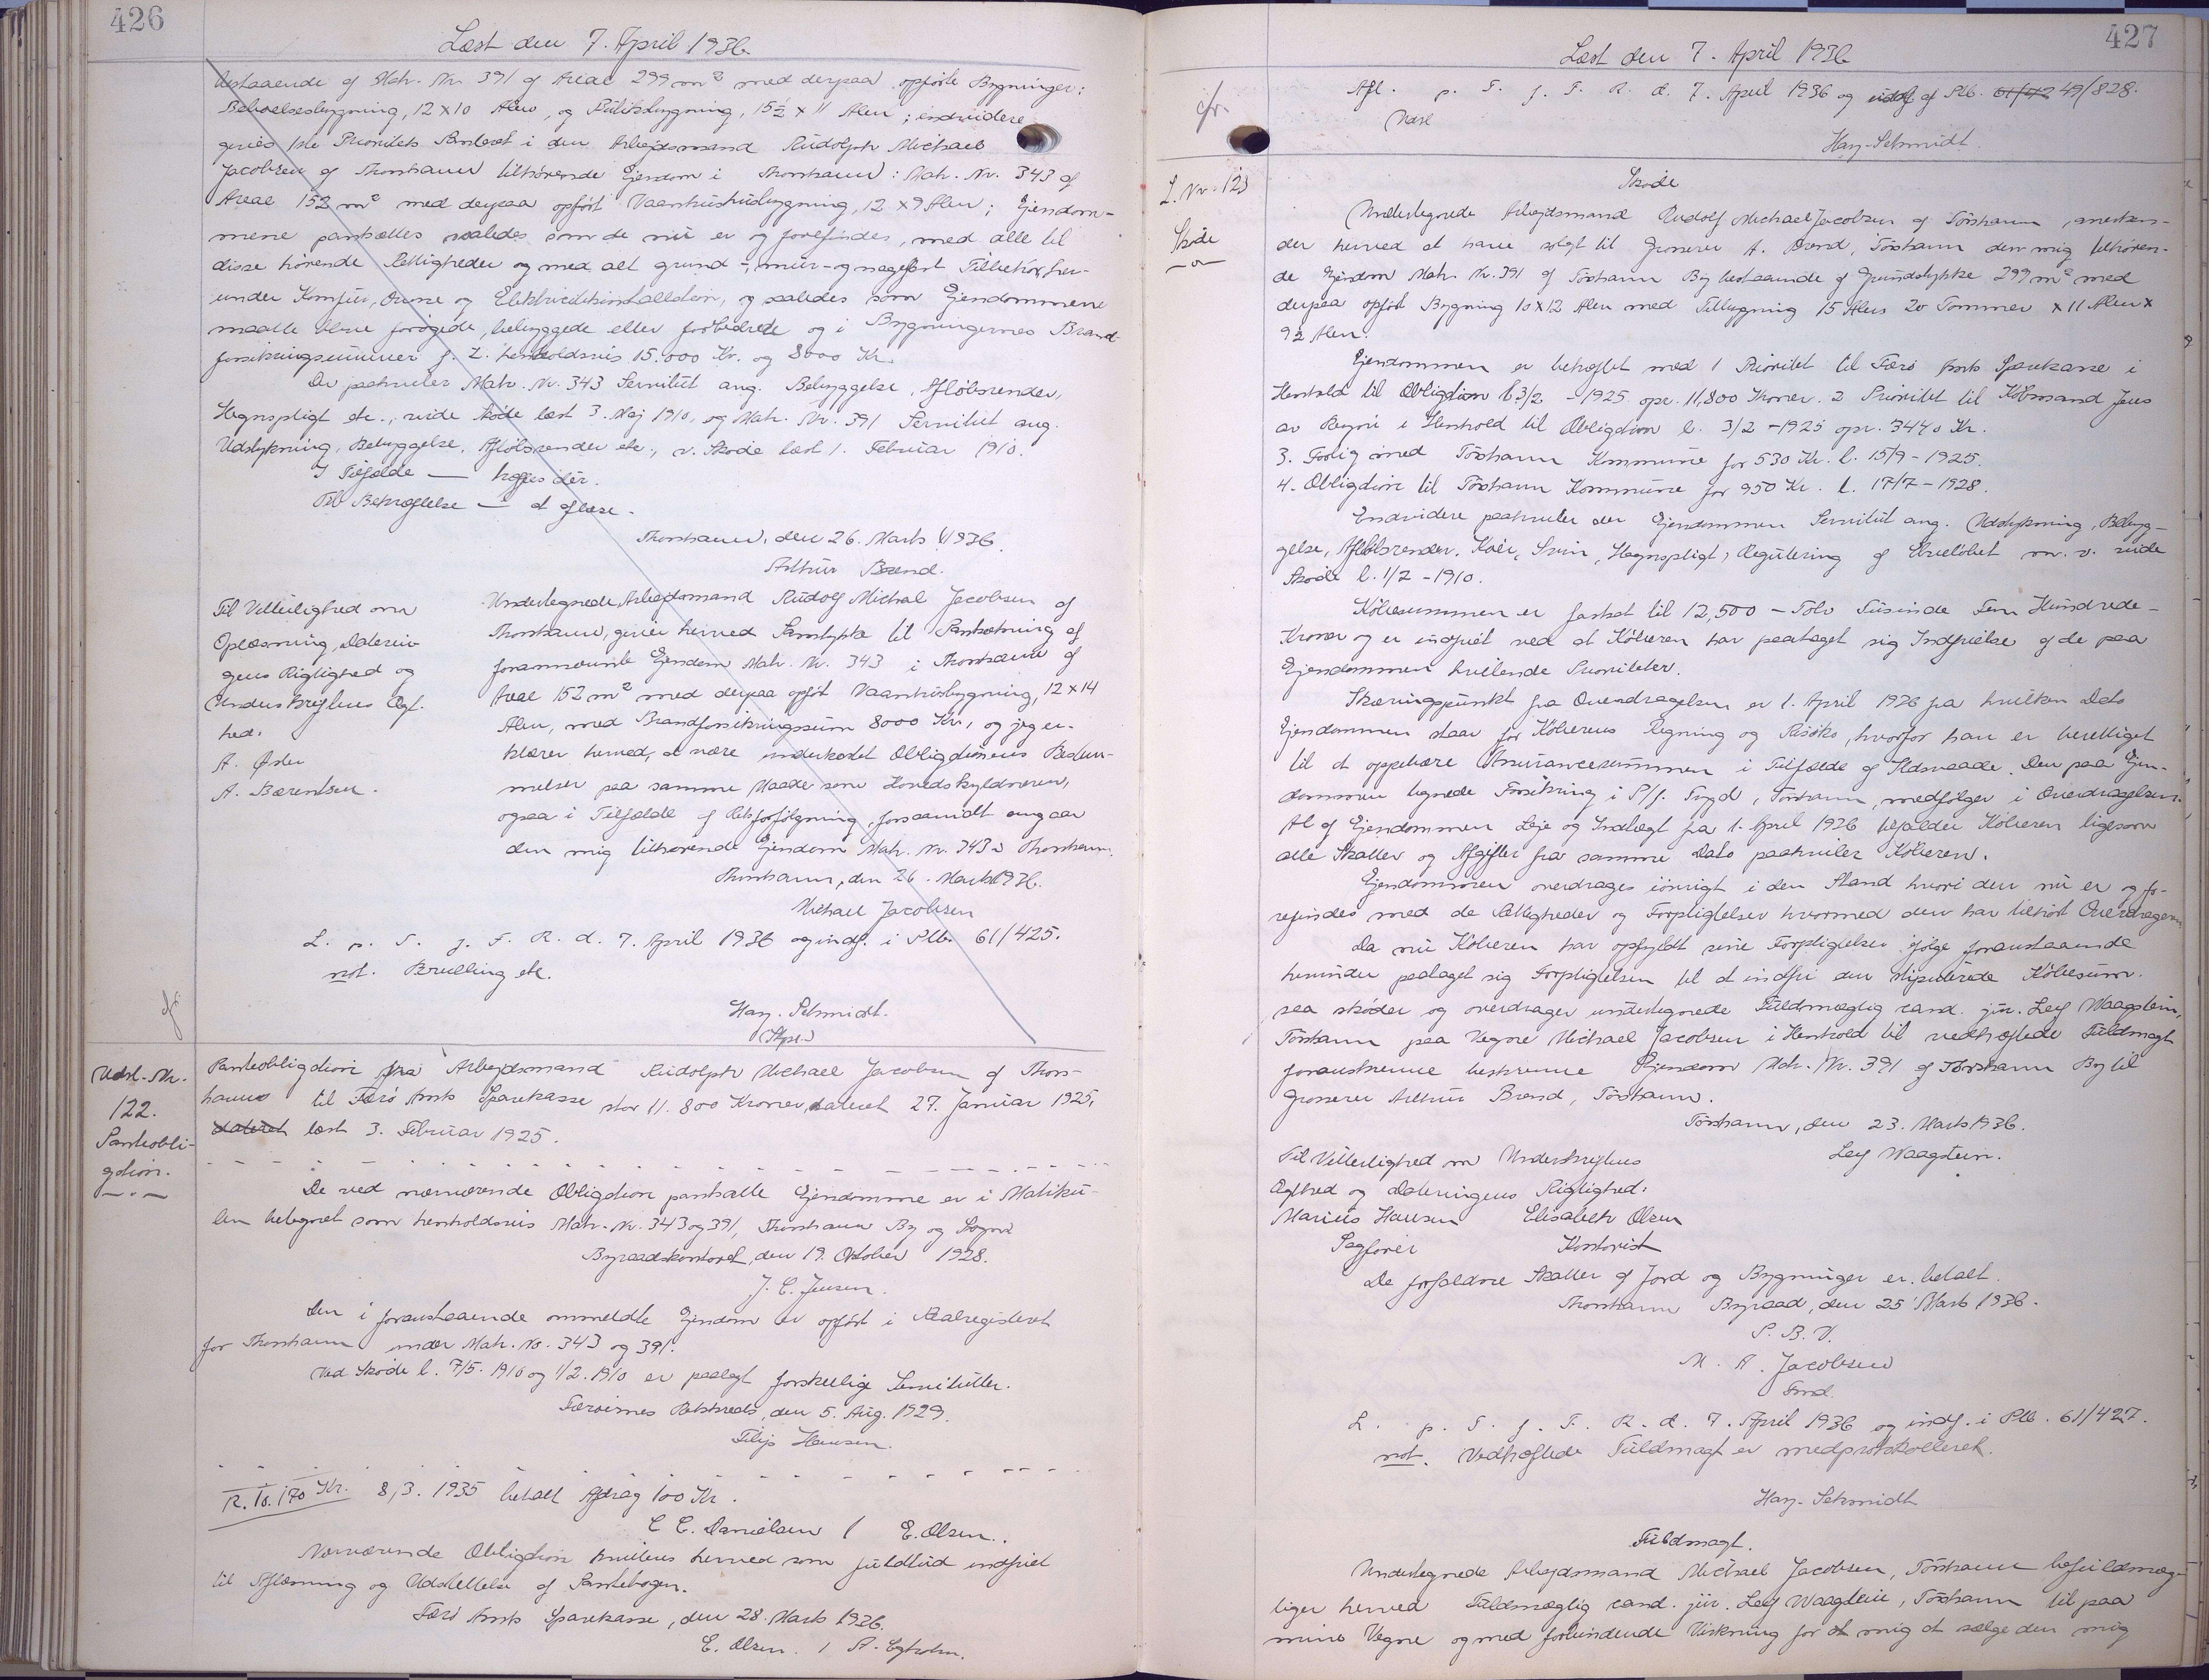 426
Læst den 7. April 1936.
bestaaende af Matr. Nr. 391 af Areal 299 m² med derpaa opførte Bygninger:
Beboelsesbygning, 12 x 10 Alen, og Butiksbygning, 15½ x 11 Alen; endvidere
gives 1ste Prioritets Panteret i den Arbejdsmand Rudolph Michael
Jacobsen af Thorshavn tilhørende Ejendom i Thorshavn: Matr. Nr. 343 af
Areal 152 m² med derpaa opført Vaaningshusbygning, 12 x 9 Alen; Ejendom-
mene pantsættes saaledes som de nu er og forefindes, med alle til
disse hørende Rettigheder og med alt grund-, mur- og nagelfast Tilbehør, her-
under Komfur, Ovne og Elektricitetsinstallation, og saaledes som Ejendommene
maatte blive forøgede, bebyggede eller forbedrede og i Bygningernes Brand-
forsikringssummer p. t. henholdsvis 15.000 Kr. og 8000 Kr.
Der paahviler Matr. Nr. 343 Servitut ang. Bebyggelse, Afløbsrender,
Hegnspligt etc., vide Skøde læst 3. Maj 1910, og Matr. Nr. 391 Servitut ang.
Udstykning, Bebyggelse, Afløbsrender etc., v. Skøde læst 1. Februar 1910.
I Tilfælde —
Til Bekræftelse — at aflæse.
Thorshavn, den 26. Marts 1936.
Arthur Brend.
Til Vitterlighed om
Oplæsning, Daterin-
gens Rigtighed og
Underskriftens Ægt-
hed:
A. Øster
A. Bærentsen.
Undertegnede, Arbejdsmand Rudolf Michal Jacobsen af
Thorshavn, giver herved Samtykke til Pantsætning af
forannævnte Ejendom Matr. Nr. 343 i Thorshavn af
Areal 152 m² med derpaa opført Vaaningsbygning, 12 x 14
Alen, med Brandforsikringssum 8000 Kr., og jeg er-
klærer herved, at være underkastet Obligationens Bestem-
melser paa samme Maade som Hovedskyldneren,
ogsaa i Tilfælde af Retsforfølgning, forsaavidt angaar
den mig tilhørende Ejendom Matr. Nr. 343 i Thorshavn.
Thorshavn, den 26. Marts 1936.
Michael Jacobsen
L. p. T. f. F. R. d. 7. April 1936 og indf. i Ptb. 61/425.
not. Brudling etc.
Harz-Schmidt.
(Skpr.)
Udsl. Nr.
122.
Panteobli-
gation.
Panteobligation fra Arbejdsmand Rudolph Michael Jacobsen af Thors-
havn til Færø Amts Sparekasse stor 11.800 Kroner, dateret 27. Januar 1925,
dateret læst 3. Februar 1925.
De ved nærværende Obligation pantsatte Ejendomme er i Matriku-
len betegnet som henholdsvis Matr. Nr. 343 og 391, Thorshavn By og Sogn
Byraadskontoret, den 19. Oktober 1928.
J. C. Jensen.
Den i foranstaaende ommeldte Ejendom er opført i Realregisteret
for Thorshavn under Matr. No. 343 og 391.
Ved Skøde l. 7/5. 1910 og 1/2. 1910 er paalagt forskellige Servitutter.
Færøernes Retskreds, den 5. Aug. 1929.
Filip Hansen.
R. 10. 170 Kr. 8/3. 1935 betalt Afdrag 100 Kr.
C. C. Danielsen / E. Olsen.
Nærværende Obligation kvitteres herved som fuldtud indfriet
til Aflæsning og Udslettelse af Pantebogen.
Færø Amts Sparekasse, den 28. Marts 1936.
E. Olsen. / A. Egholm.
427
Læst den 7. April 1936
Afl. p. T. f. F. R. d. 7. April 1936 og udsl. af Ptb. 49/828.
Harz-Schmidt.
L. Nr. 123
Skøde
Skøde
Undertegnede Arbejdsmand Rudolf Michael Jacobsen af Tórshavn, anerken-
der herved at have solgt til Grosserer A. Brend, Tórshavn den mig tilhøren-
de Ejendom Matr. Nr. 391 af Tórshavn By bestaaende af Grundstykke 299 m² med
derpaa opført Bygning 10 x 12 Alen med Tilbygning 15 Alen 20 Tommer x 11 Alen x
9½ Alen.
Ejendommen er behæftet med 1 Prioritet til Færø Amts Sparekasse i
Henhold til Obligation l. 3/2 - 1925 opr. 11,800 Kroner. 2 Prioritet til Købmand Jens
av Reyni i Henhold til Obligation l. 3/2 - 1925 opr. 3440 Kr.
3. Forlig med Tórshavn Kommune for 530 Kr. l. 15/9 - 1925.
4. Obligation til Tórshavn Kommune for 950 Kr. l. 17/7 - 1928.
Endvidere paahviler der Ejendommen Servitut ang. Udstykning, Bebyg-
gelse, Afløbsrender, Køer, Svin, Hegnspligt, Regulering af Elveløbet m. v. vide
Skøde l. 1/2 - 1910.
Købesummen er fastsat til 12,500 - Tolv Tusinde Fem Hundrede -
Kroner og er indfriet ved at Køberen har paataget sig Indfrielse af de paa
Ejendommen hvilende Prioriteter.
Skæringspunkt fra Overdragelsen er 1. April 1936 fra hvilken Dato
Ejendommen staar for Køberens Regning og Risiko, hvorfor han er berettiget
til at oppebære Assurancesummen i Tilfælde af Ildsvaade. Den paa Ejen-
dommen tegnede Forsikring i P/f. Trygd, Tórshavn, medfølger i Overdragelsen.
Al af Ejendommen Leje og Indtægt fra 1. April 1936 tilfalder Køberen ligesom
alle Skatter og Afgifter fra samme Dato paahviler Køberen.
Ejendommen overdrages iøvrigt i den Stand hvori den nu er og fo-
refindes med de Rettigheder og Forpligtelser hvormed den har tilhørt Overdrageren.
Da nu Køberen har opfyldt sine Forpligtelser ifølge foranstaaende
herunder paataget sig Forpligtelsen til at indfri den stipulerede Købesum.
saa skøder og overdrager undertegnede Fuldmægtig cand. jur. Leif Waagstein,
Tórshavn paa Vegne Michael Jacobsen i Henhold til vedhæftede Fuldmagt
foranskrevne beskrevne Ejendom Matr. Nr. 391 af Tórshavn By til
Grosserer Arthur Brend, Tórshavn.
Tórshavn, den 23. Marts 1936.
Leif Waagstein.
Til Vitterlighed om Underskriftens
Ægthed og Dateringens Rigtighed:
Marius Hansen Elisabeth Olsen
Sagfører Kontorist
De forfaldne Skatter af Jord og Bygninger er betalt.
Thorshavn Byraad, den 25 Marts 1936.
P. B. V.
M. A. Jacobsen
Fmd.
L. p. T. f. F. R. d. 7. April 1936 og indf. i Ptb. 61/427.
not. Vedhæftede Fuldmagt er medprotokolleret.
Harz-Schmidt
Fuldmagt.
Undertegnede Arbejdsmand Michael Jacobsen, Tórshavn befuldmæg-
tiger herved Fuldmægtig cand. jur. Leif Waagstein, Tórshavn til paa
mine Vegne og med forbindende Virkning for mig at sælge den mig